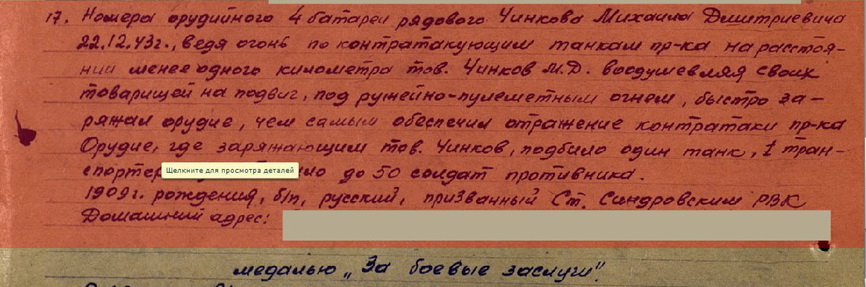 17. Номера орудийного 4 батареи рядового Чинкова Михаила Дмитриевича
22.12.43г., ведя огонь по контратакующим танкам пр-ка на расстоя-
нии менее одного километра тов. Чинков М.Д. воодушевляя своих
товарищей на подвиг, под ружейно-пулеметным огнем, быстро за-
ряжал орудие, чем самым обеспечил отражение контратаки пр-ка
Орудие, где заряжающим тов. Чинков, подбило один танк, 1 тран-
спортер Щелкните для просмотра деталей до 50 солдат противника.
1909г. рождения, б/п, русский, призванный Ст. Синдровским РВК
Домашний адрес:
медалью „За боевые заслуги".